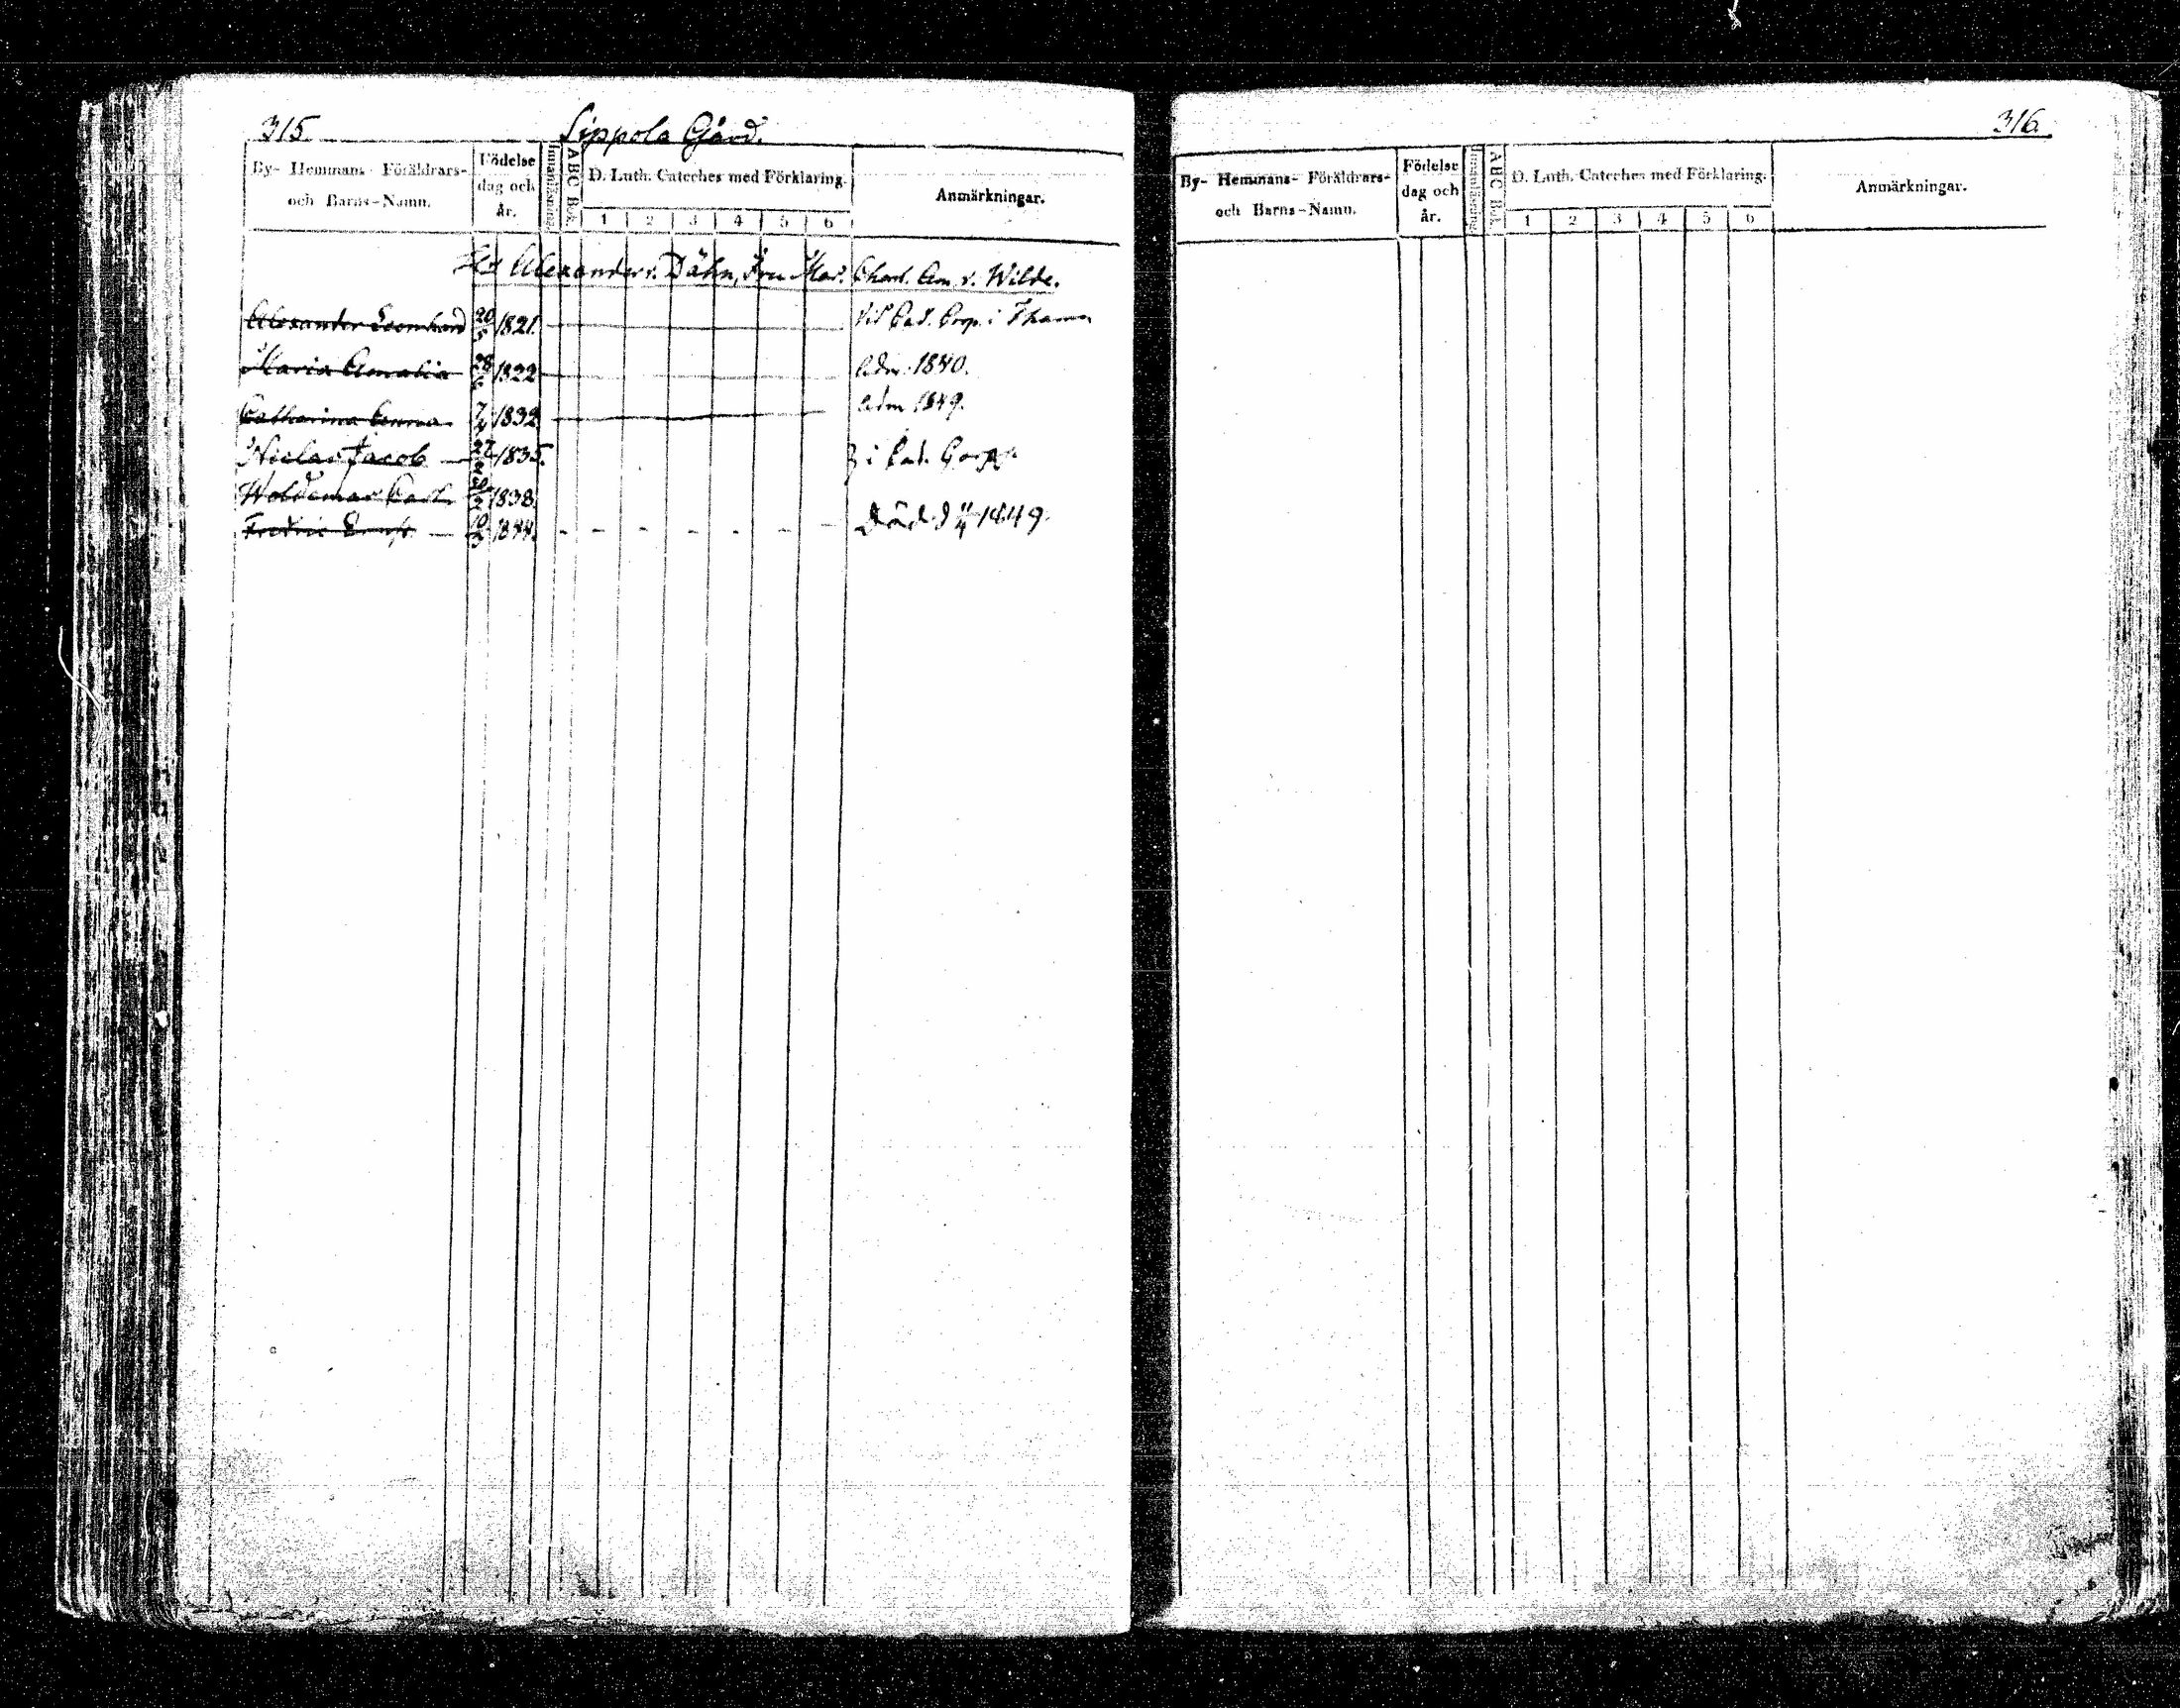 315. Sippola Gård.
By- Hemmans- Föräldrars- och Barns-Namn. Födelse dag och år. Innanläsning ABC Bok. D. Luth. Cateches med Förklaring. Anmärkningar.
1 2 3 4 5 6
Hr Alexander v. Dähn, Fru Mar. Charl. Am. v. Wilde.
Alexander Leonhard 20/5 1821. Vid Cad. Corp. i Fhamn
Maria Amalia 28/6 1822 Adm. 1840.
Catharina Emma 7/4 1832 Adm 1849.
Niclas Jacob 27/2 1835. i Cad. Corps.
Woldemar Carl 20/2 1838.
Fredric Ernst 10/3 1844. Död d 11/4 1849.
316.
By- Hemmans- Föräldrars- och Barns-Namn. Födelse dag och år. Innanläsning ABC Bok. D. Luth. Cateches med Förklaring. Anmärkningar.
1 2 3 4 5 6